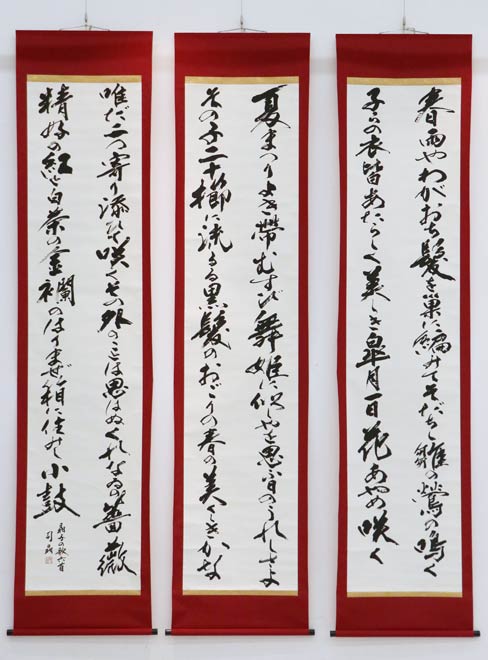 春雨やわがおち髪を巣に編みてそだちし雛の鶯の鳴く
子らの衣皆あたらしく美しき皐月一日花あやめ咲く
夏まつりよき帯むすび舞姫に似しやを思ふ日のうれしさよ
その子二十櫛に流るる黒髪のおごりの春の美しきかな
唯だ二つ寄り添ひて咲くその外のことは思はぬくれなゐの薔薇
精好の紅と白茶の金襴のはりまぜ箱に住みし小鼓
晶子の歌六首